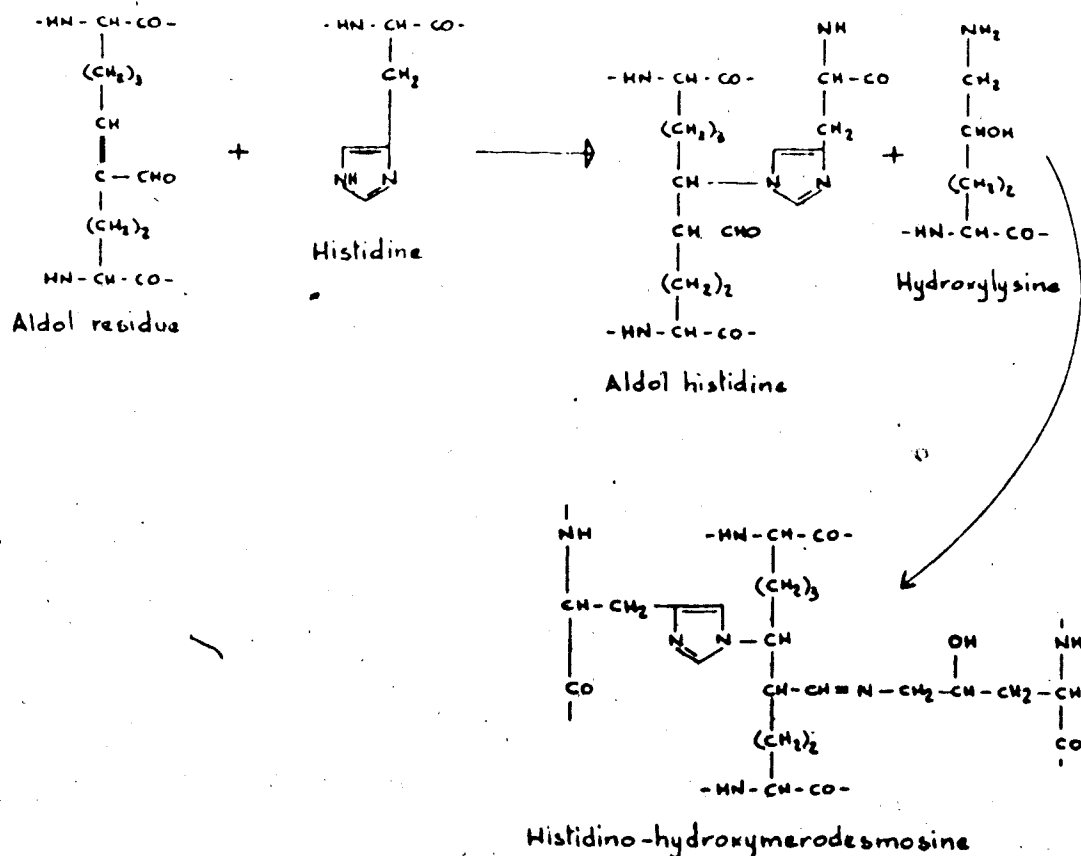 -HN-CH-CO-
(CH2)3
CH
C-CHO
(CH2)2
HN-CH-CO-
Aldol residue
+
-HN-CH-CO-
CH2
NH
N
Histidine
-HN-CH-CO-
(CH2)3
CH
CH CHO
(CH2)2
-HN-CH-CO-
NH
CH-CO
CH2
N
N
Aldol histidine
+
NH2
CH2
CHOH
(CH2)2
-HN-CH-CO-
Hydroxylysine
NH
CH-CH2
CO
N
N
-HN-CH-CO-
(CH2)3
CH
CH-CH=N-CH2-CH-CH2-CH
OH
NH
CO
(CH2)2
-HN-CH-CO-
Histidino-hydroxymerodesmosine